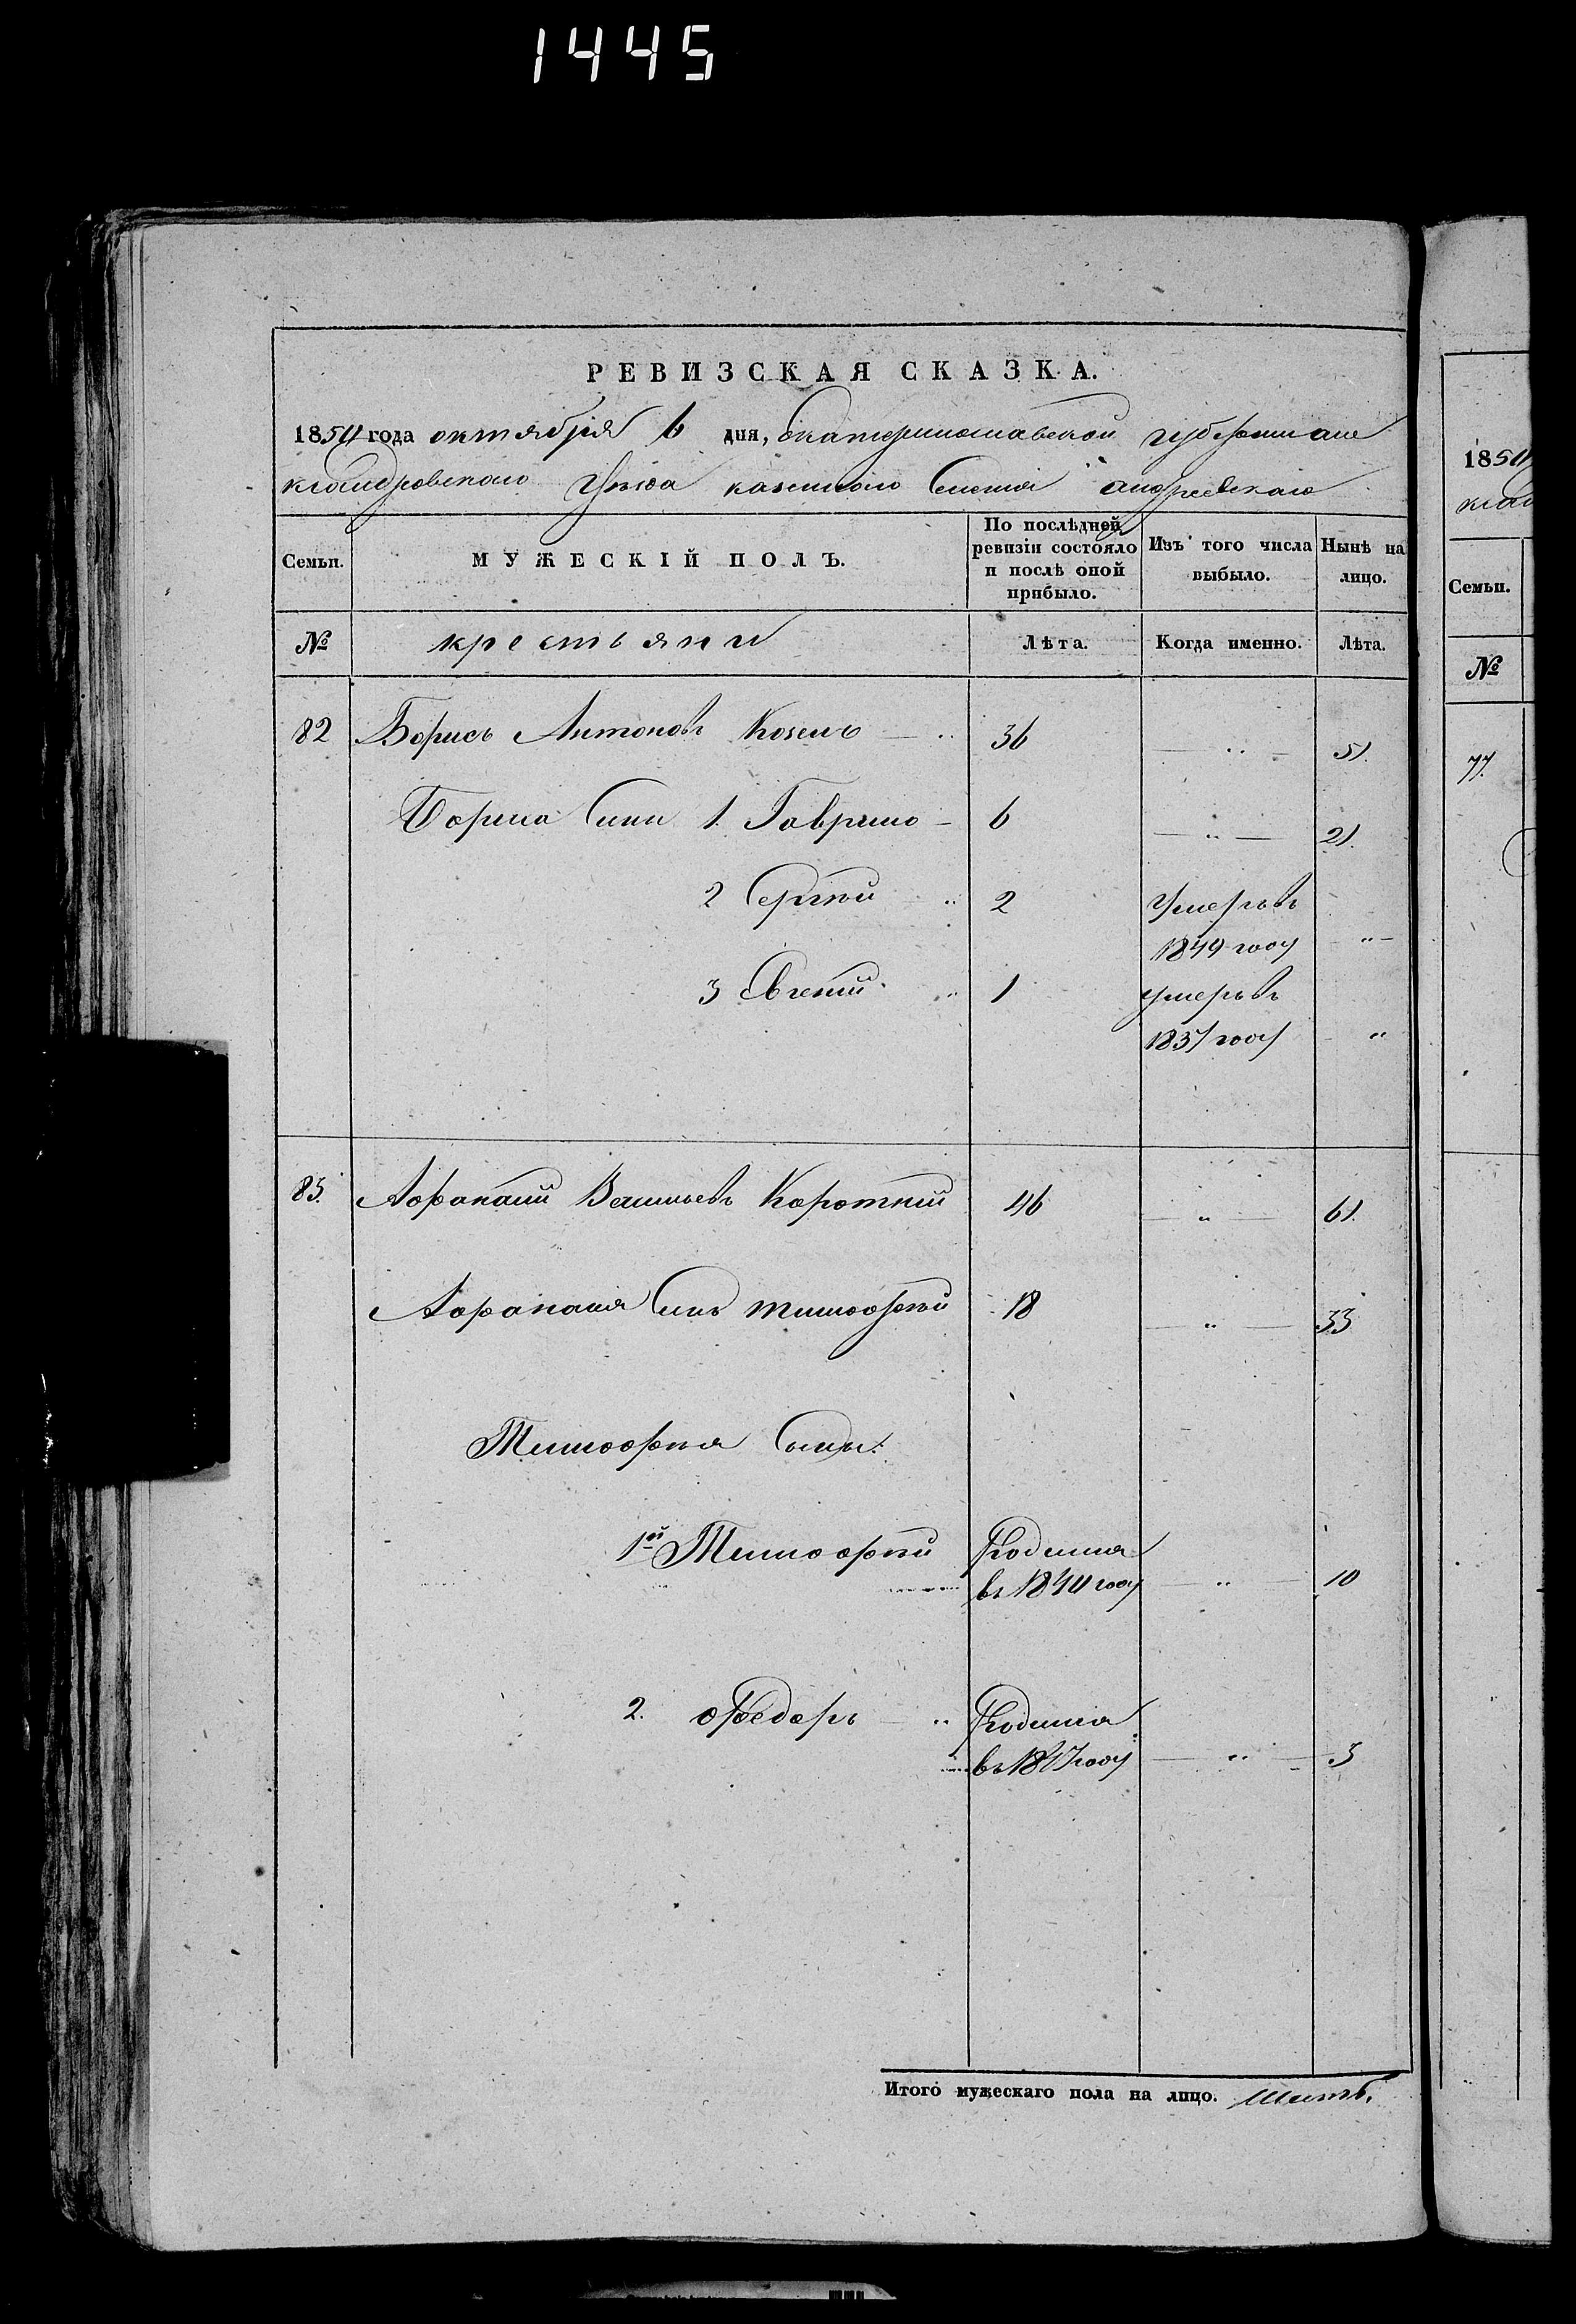 1445
РЕВИЗСКАЯ СКАЗКА.
1850 года октября 6 дня, Екатеринославской губернии але
ксандровского Уѣзда казенного Селенія андреевскаго
Семьи.
МУЖЕСКІЙ ПОЛЪ.
По послѣдней ревизіи состояло и послѣ оной прибыло.
Изъ того числа выбыло.
Нынѣ на лицо.
№ крестьяни Лѣта. Когда именно. Лѣта.
82 Борисъ Антоновъ Козелъ 36 — „ — 51.
Бориса Сини 1. Гаврило 6 — „ — 21.
2 Сергѣй „ 2 Умеръ въ
1849 году „
3 Евгеній „ 1 умеръ въ
1837 году „
83. Афанасий Васильевъ Короткий 46 — „ — 61.
Афанасия Синъ тимофѣй 18 — „ — 33
Тимофѣя Сыны:
1й Тимофѣй Родился
въ 1840 году — „ — 10
2. Федоръ „ Родился
въ 1847 году — „ — 3
Итого мужескаго пола на лицо. Шесть.
1850
ксан
Семьи.
№
77.